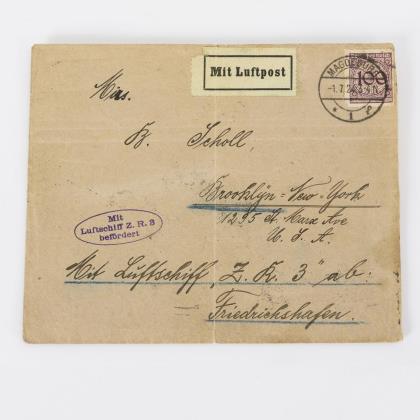 Mit Luftpost
MAGDEBURG
-1.7.24.
* 1 f
100
Mrs.
B. Scholl,
Brooklyn-New-York
1295 St. Marx Ave
U. S. A.
Mit
Luftschiff Z. R. 3
befördert
Mit Luftschiff „Z. R. 3" ab:
Friedrichshafen.